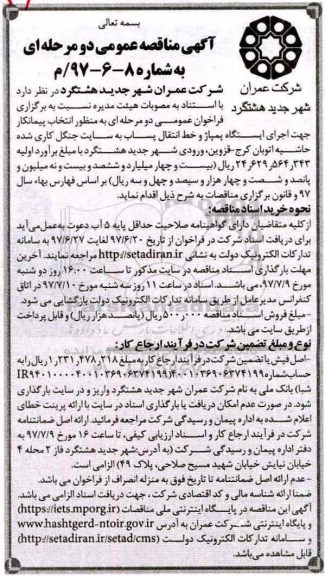 بسمه تعالی
آگهی مناقصه عمومی دو مرحله‌ای
به شماره ۸-۶-۹۷/م
شرکت عمران
شهر جدید هشتگرد
شرکت عمران شهر جدید هشتگرد در نظر دارد
با استناد به مصوبات هیئت مدیره نسبت به برگزاری
فراخوان عمومی دو مرحله‌ای به منظور انتخاب پیمانکار
جهت اجرای ایستگاه پمپاژ و خط انتقال پساب به سایت جنگل کاری شده
حاشیه اتوبان کرج-قزوین، ورودی شهر جدید هشتگرد با مبلغ برآورد اولیه
۲۴,۶۲۹,۵۶۴,۳۴۳ ریال (بیست و چهار میلیارد و ششصد و بیست و نه میلیون و
پانصد و شصت و چهار هزار و سیصد و چهل و سه ریال) بر اساس فهارس بهاء سال
۹۷ و قانون برگزاری مناقصات به شرح ذیل اقدام نماید.
نحوه خرید اسناد مناقصه:
از کلیه متقاضیان دارای گواهینامه صلاحیت حداقل پایه ۵ آب دعوت به‌عمل می‌آید
برای دریافت اسناد شرکت در فراخوان از تاریخ ۹۷/۶/۲۰ لغایت ۹۷/۶/۲۷ به سامانه
تدارکات الکترونیک دولت به نشانی http://setadiran.ir مراجعه نمایند. آخرین
مهلت بارگذاری اسناد مناقصه در سایت مذکور تا ساعت ۱۶:۰۰ روز دو شنبه
مورخ ۹۷/۷/۹، می‌باشد. اسناد در ساعت ۱۱ روز سه شنبه مورخ ۹۷/۷/۱۰ در اتاق
کنفرانس مدیرعامل از طریق سامانه تدارکات الکترونیک دولت بازگشایی می شود.
-مبلغ فروش اسناد مناقصه ۵۰۰,۰۰۰ ریال (پانصد هزار ریال) و قابل پرداخت
ازطریق سایت می باشد.
نوع و مبلغ تضمین شرکت در فرآیند ارجاع کار:
-اصل فیش یا تضمین شرکت در فرآیند ارجاع کار به مبلغ ۱,۲۳۱,۴۷۸,۲۱۸ ریال را به
شبا) بانک ملی به نام شرکت عمران شهر جدید هشتگرد واریز و در سایت بارگذاری
شود. در صورت عدم امکان دریافت یا بارگذاری اسناد در سایت با ارائه پرینت خطای
اعلام شده به اداره پیمان و رسیدگی شرکت مراجعه فرمائید. ارائه اصل ضمانتنامه
شرکت در فرآیند ارجاع کار و اسناد ارزیابی کیفی، تا ساعت ۱۶ مورخ ۹۷/۷/۹ به
دفتر اداره پیمان و رسیدگی شرکت (به آدرس: شهر جدید هشتگرد فاز ۲ محله ۴
خیابان نیایش خیابان شهید مسیح صلاحی، پلاک ۴۹) الزامی است.
-عدم ارائه اصل ضمانتنامه تا تاریخ فوق به منزله انصراف از فراخوان می باشد.
ضمنا ارائه شناسه ملی و کد اقتصادی شرکت ، جهت دریافت اسناد الزامی می باشد.
آگهی این مناقصه در پایگاه اینترنتی ملی مناقصات (https://iets.mporg.ir)
و پایگاه اینترنتی شرکت عمران به آدرس www.hashtgerd-ntoir.gov.ir
و سامانه تدارکات الکترونیک دولت (http://setadiran.ir/setad/cms)
قابل مشاهده می‌باشد.